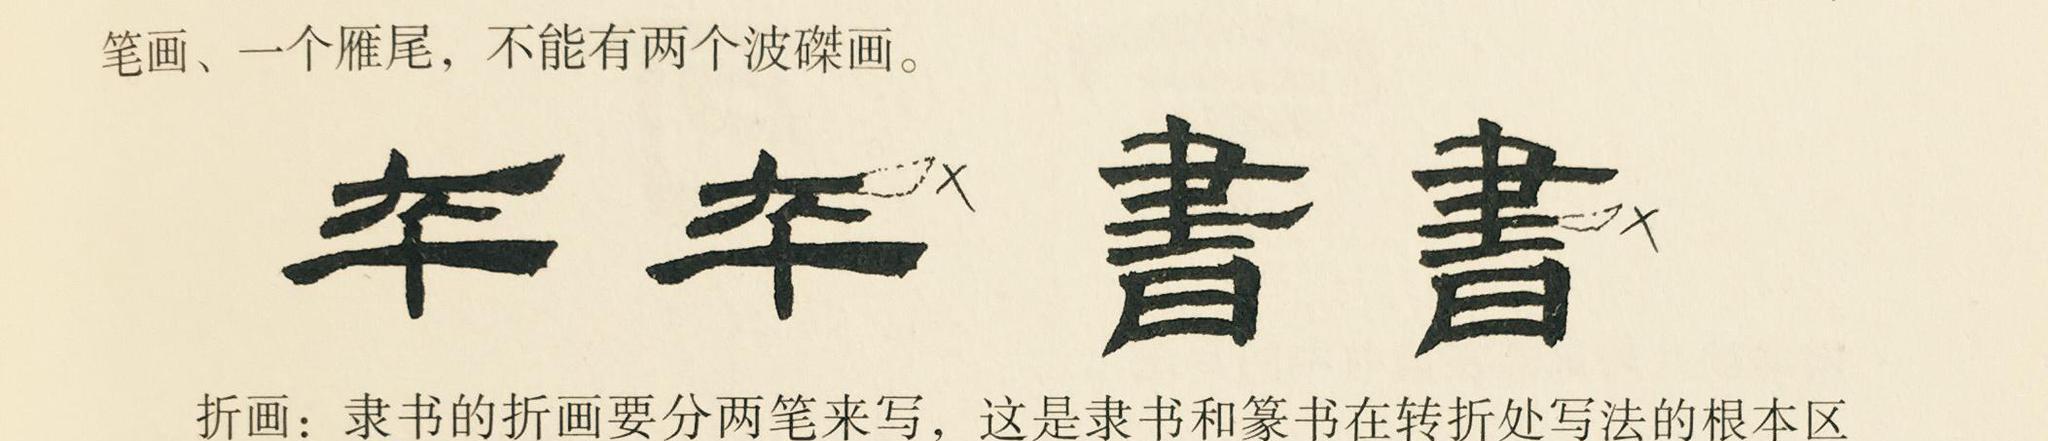 笔画、一个雁尾，不能有两个波磔画。
年 年 書 書
折画：隶书的折画要分两笔来写，这是隶书和篆书在转折处写法的根本区